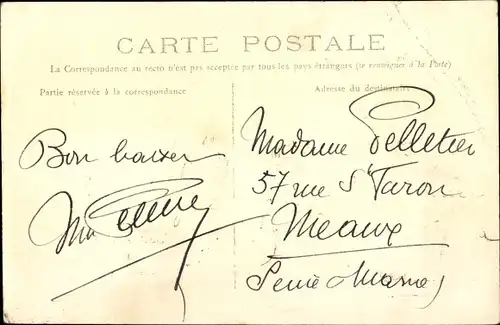 CARTE POSTALE
La Correspondance au recto n'est pas acceptée par tous les pays étrangers (se renseigner à la Poste)
Partie réservée à la correspondance
Adresse du destinataire
Bon baiser
Madame Pelletier
57 rue St Faron
Meaux
Seine & Marne